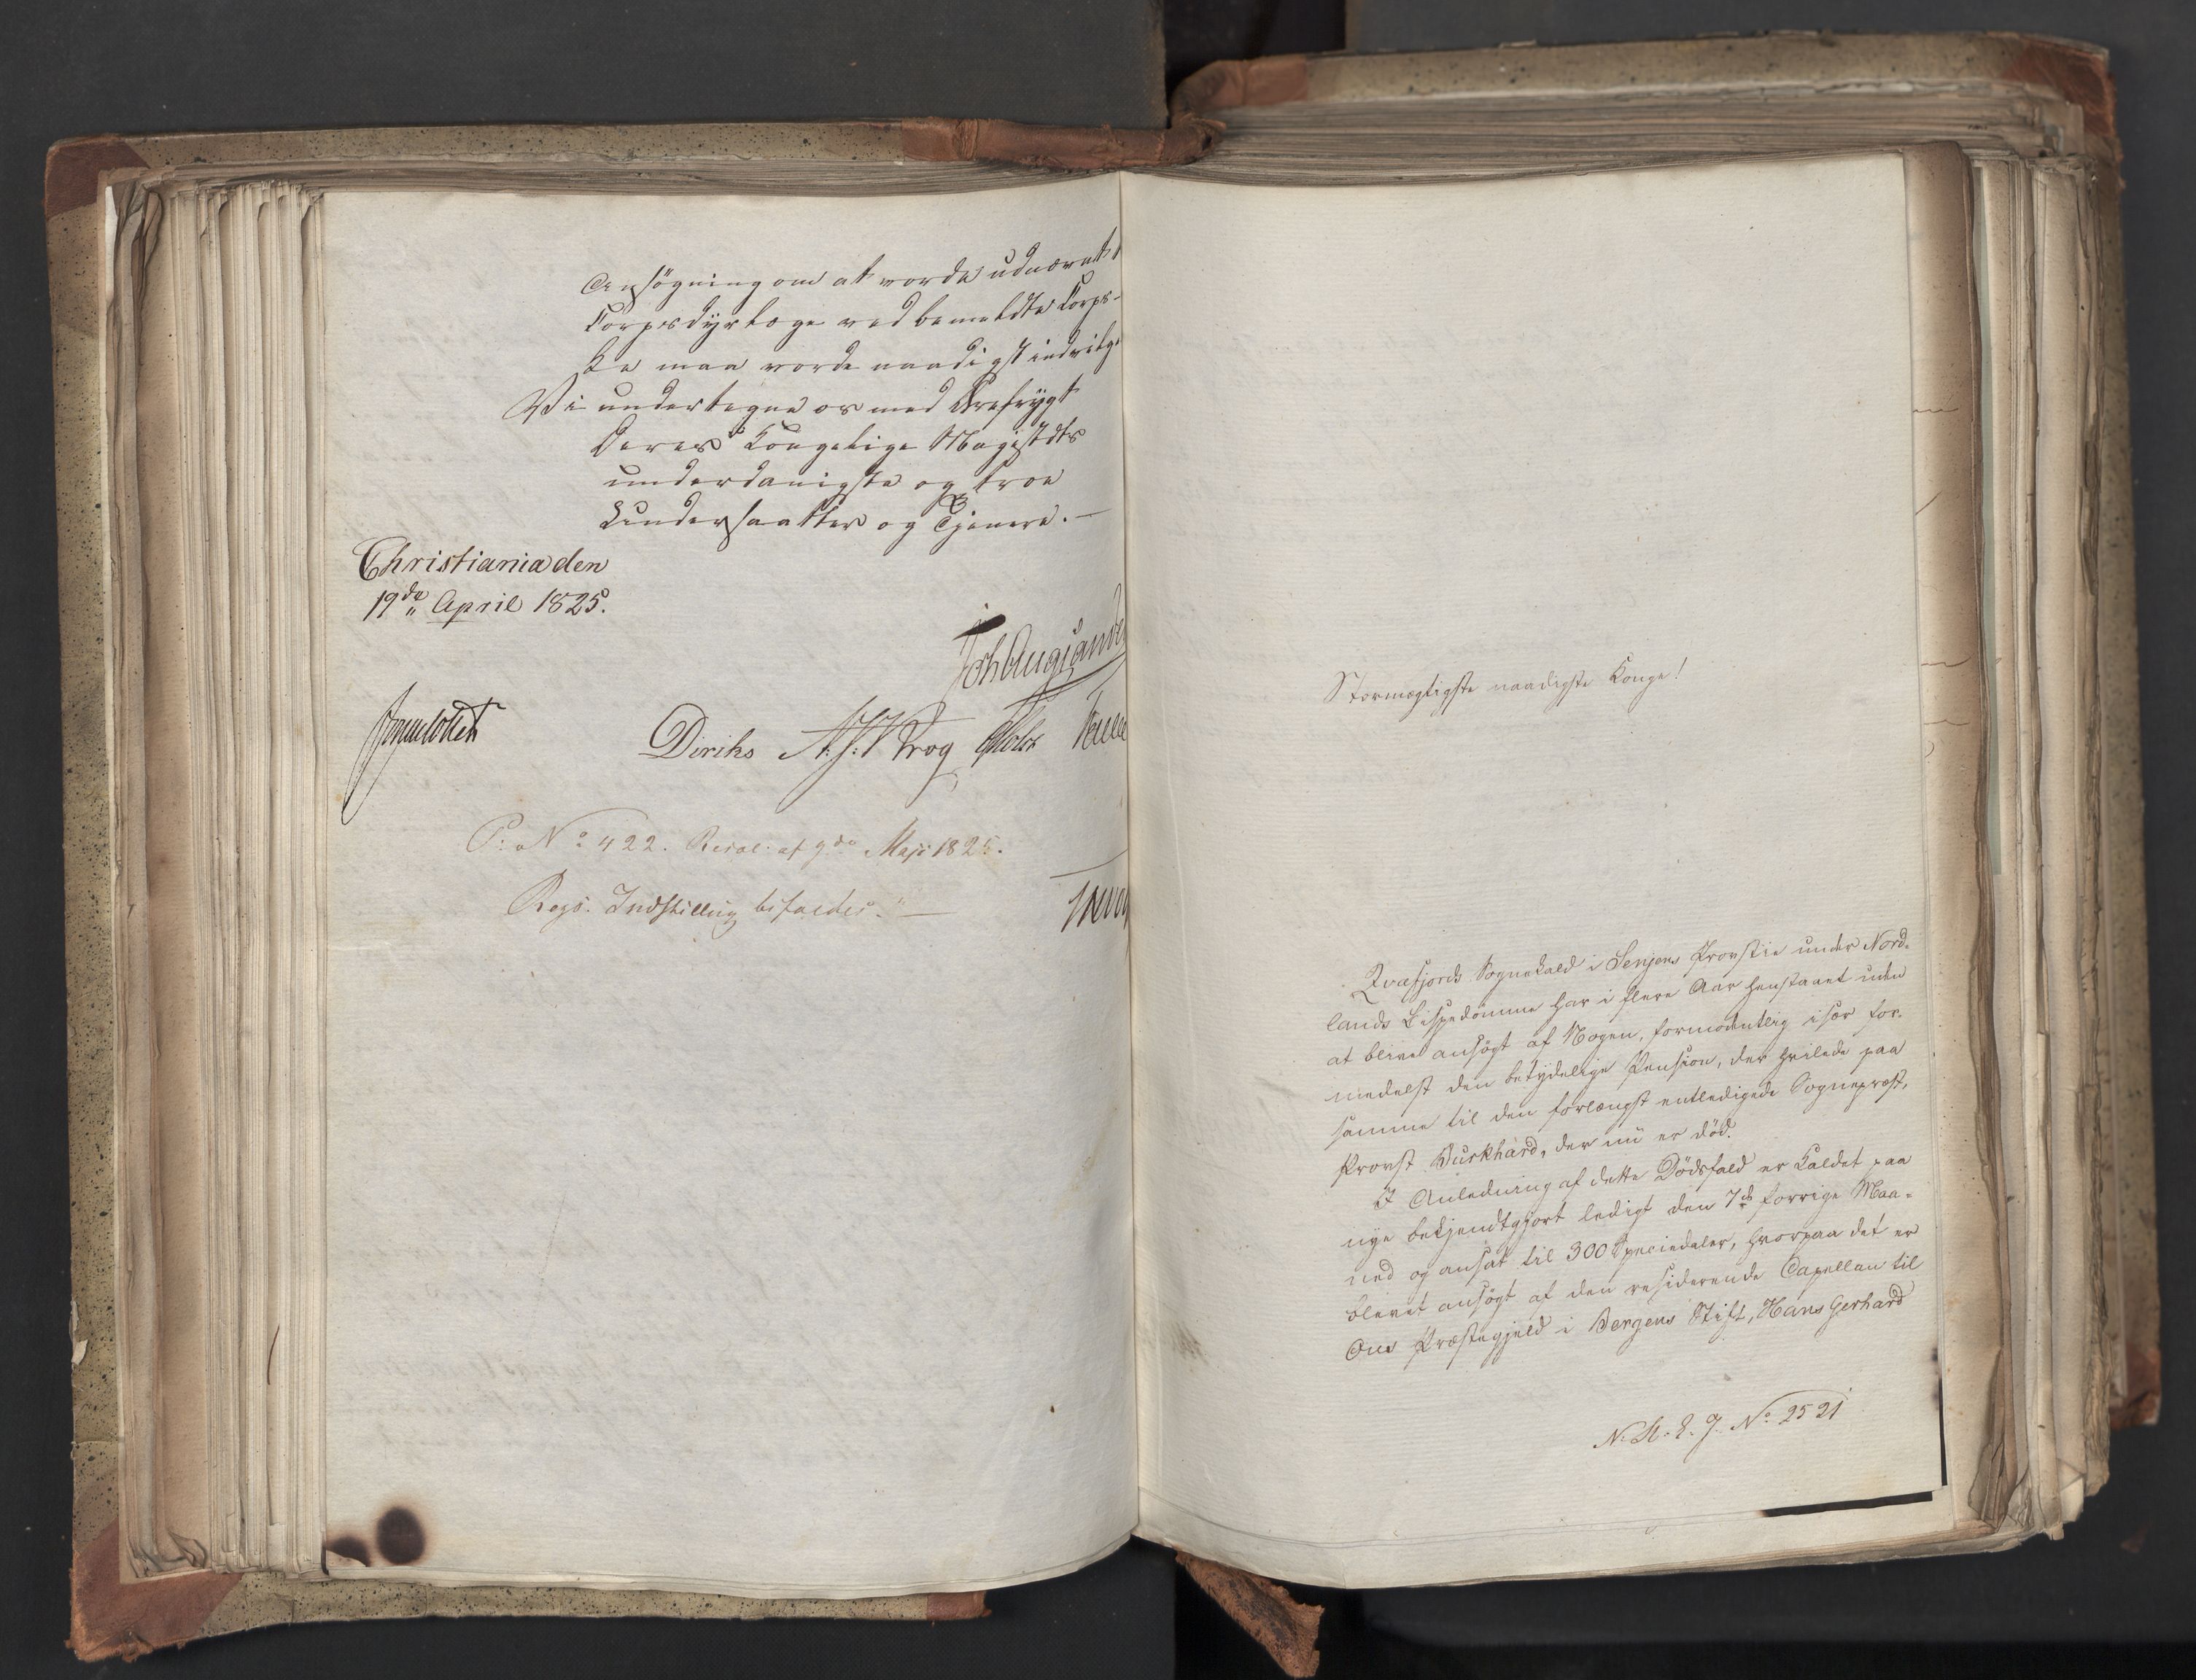 Ansøgning om at vorde udnævnt t
Corpsdyrlæge ved bemeldte Corps
ke maa vorde naadigst indvilge
Vi undertegne os med Ærefrygt
Deres Kongelige Majestæts
underdanigste og troe
Undersaatter og Tjenere. —
Christiania den
19de April 1825.
Joh Aug Sande
Diriks
P: No 422. Resol: af 9de Maji 1825.
Regs. Indstilling bifaldes. —
Stormægtigste naadigste Konge!
Qvæfjords Sognekald i Senjens Provstie under Nord-
lands Bispedømme har i flere Aar henstaaet uden
at blive ansøgt af Nogen, formodentlig især for-
medelst den betydelige Pension, der hvilede paa
samme til den forlængst entledigede Sognepræst,
Provst Burkhard, der nu er død.
I Anledning af dette Dødsfald er Kaldet paa
nye bekjendtgjort ledigt den 7de forrige Maa-
ned og ansat til 300 Speciedaler, hvorpaa det er
blevet ansøgt af den residerende Capellan til
Ous Præstegjeld i Bergens Stift, Hans Gerhard
No 2521